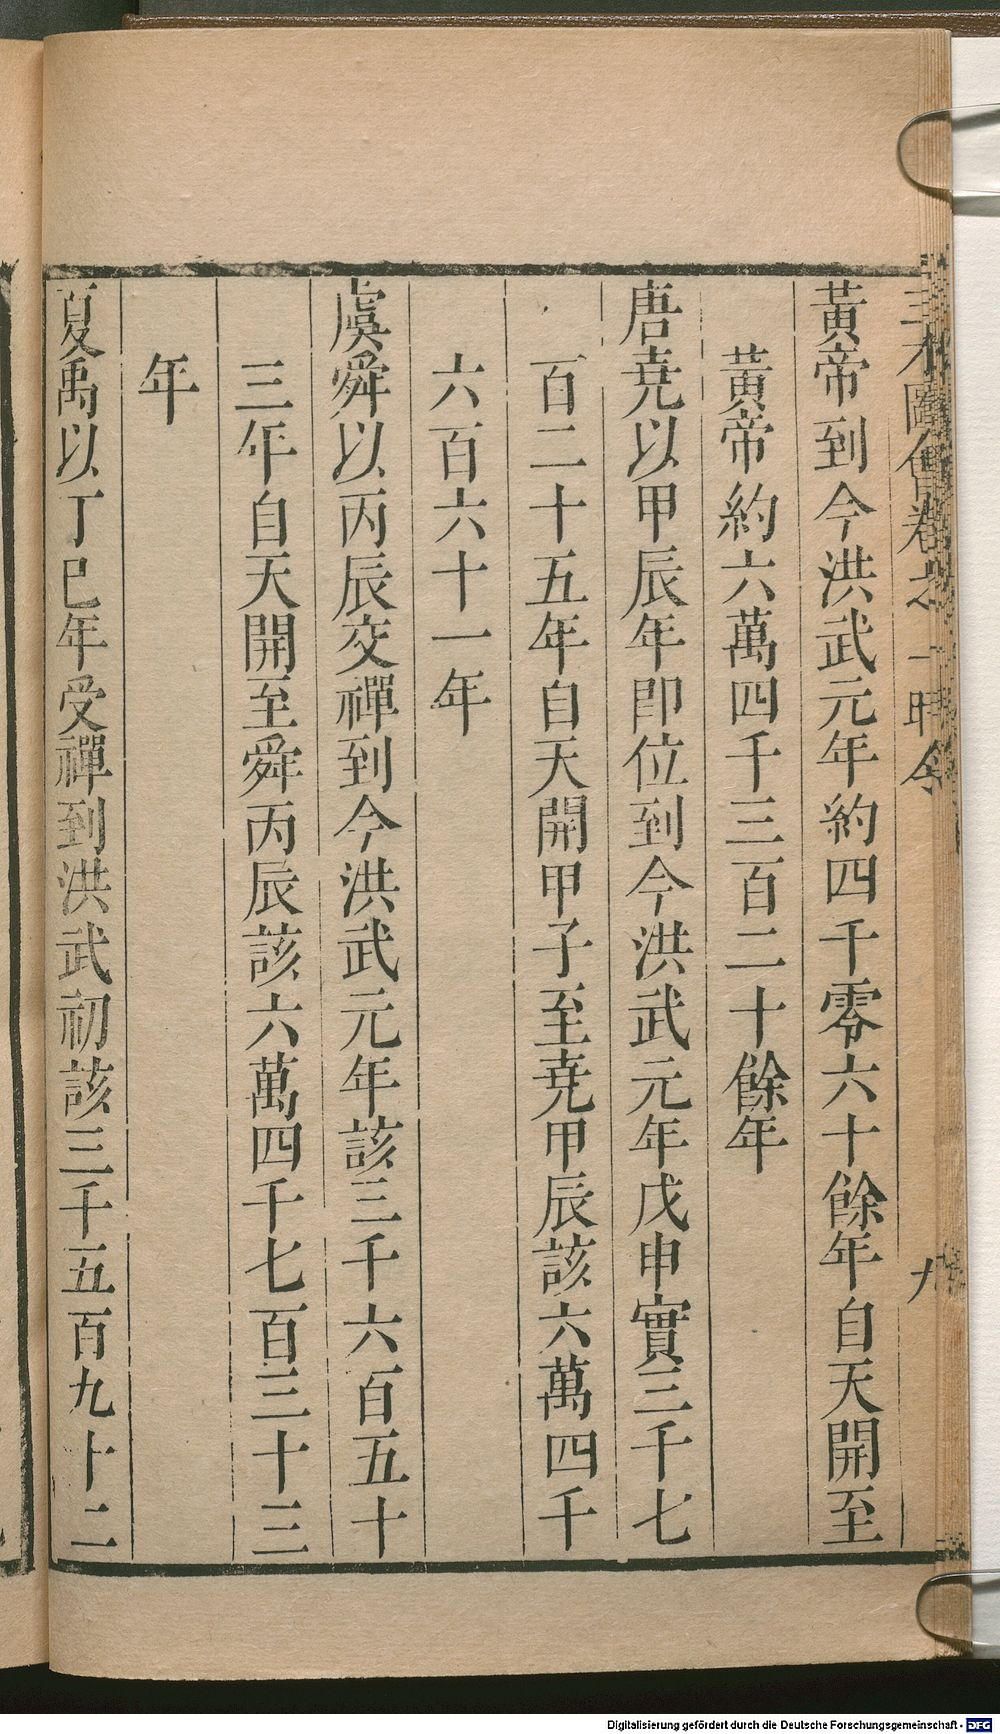 三才圖會卷之一時令 九
黃帝到今洪武元年約四千零六十餘年自天開至
黃帝約六萬四千三百二十餘年
唐堯以甲辰年即位到今洪武元年戊申實三千七
百二十五年自天開甲子至堯甲辰該六萬四千
六百六十一年
虞舜以丙辰交禪到今洪武元年該三千六百五十
三年自天開至舜丙辰該六萬四千七百三十三
年
夏禹以丁巳年受禪到洪武初該三千五百九十二
Digitalisierung gefördert durch die Deutsche Forschungsgemeinschaft - DFG